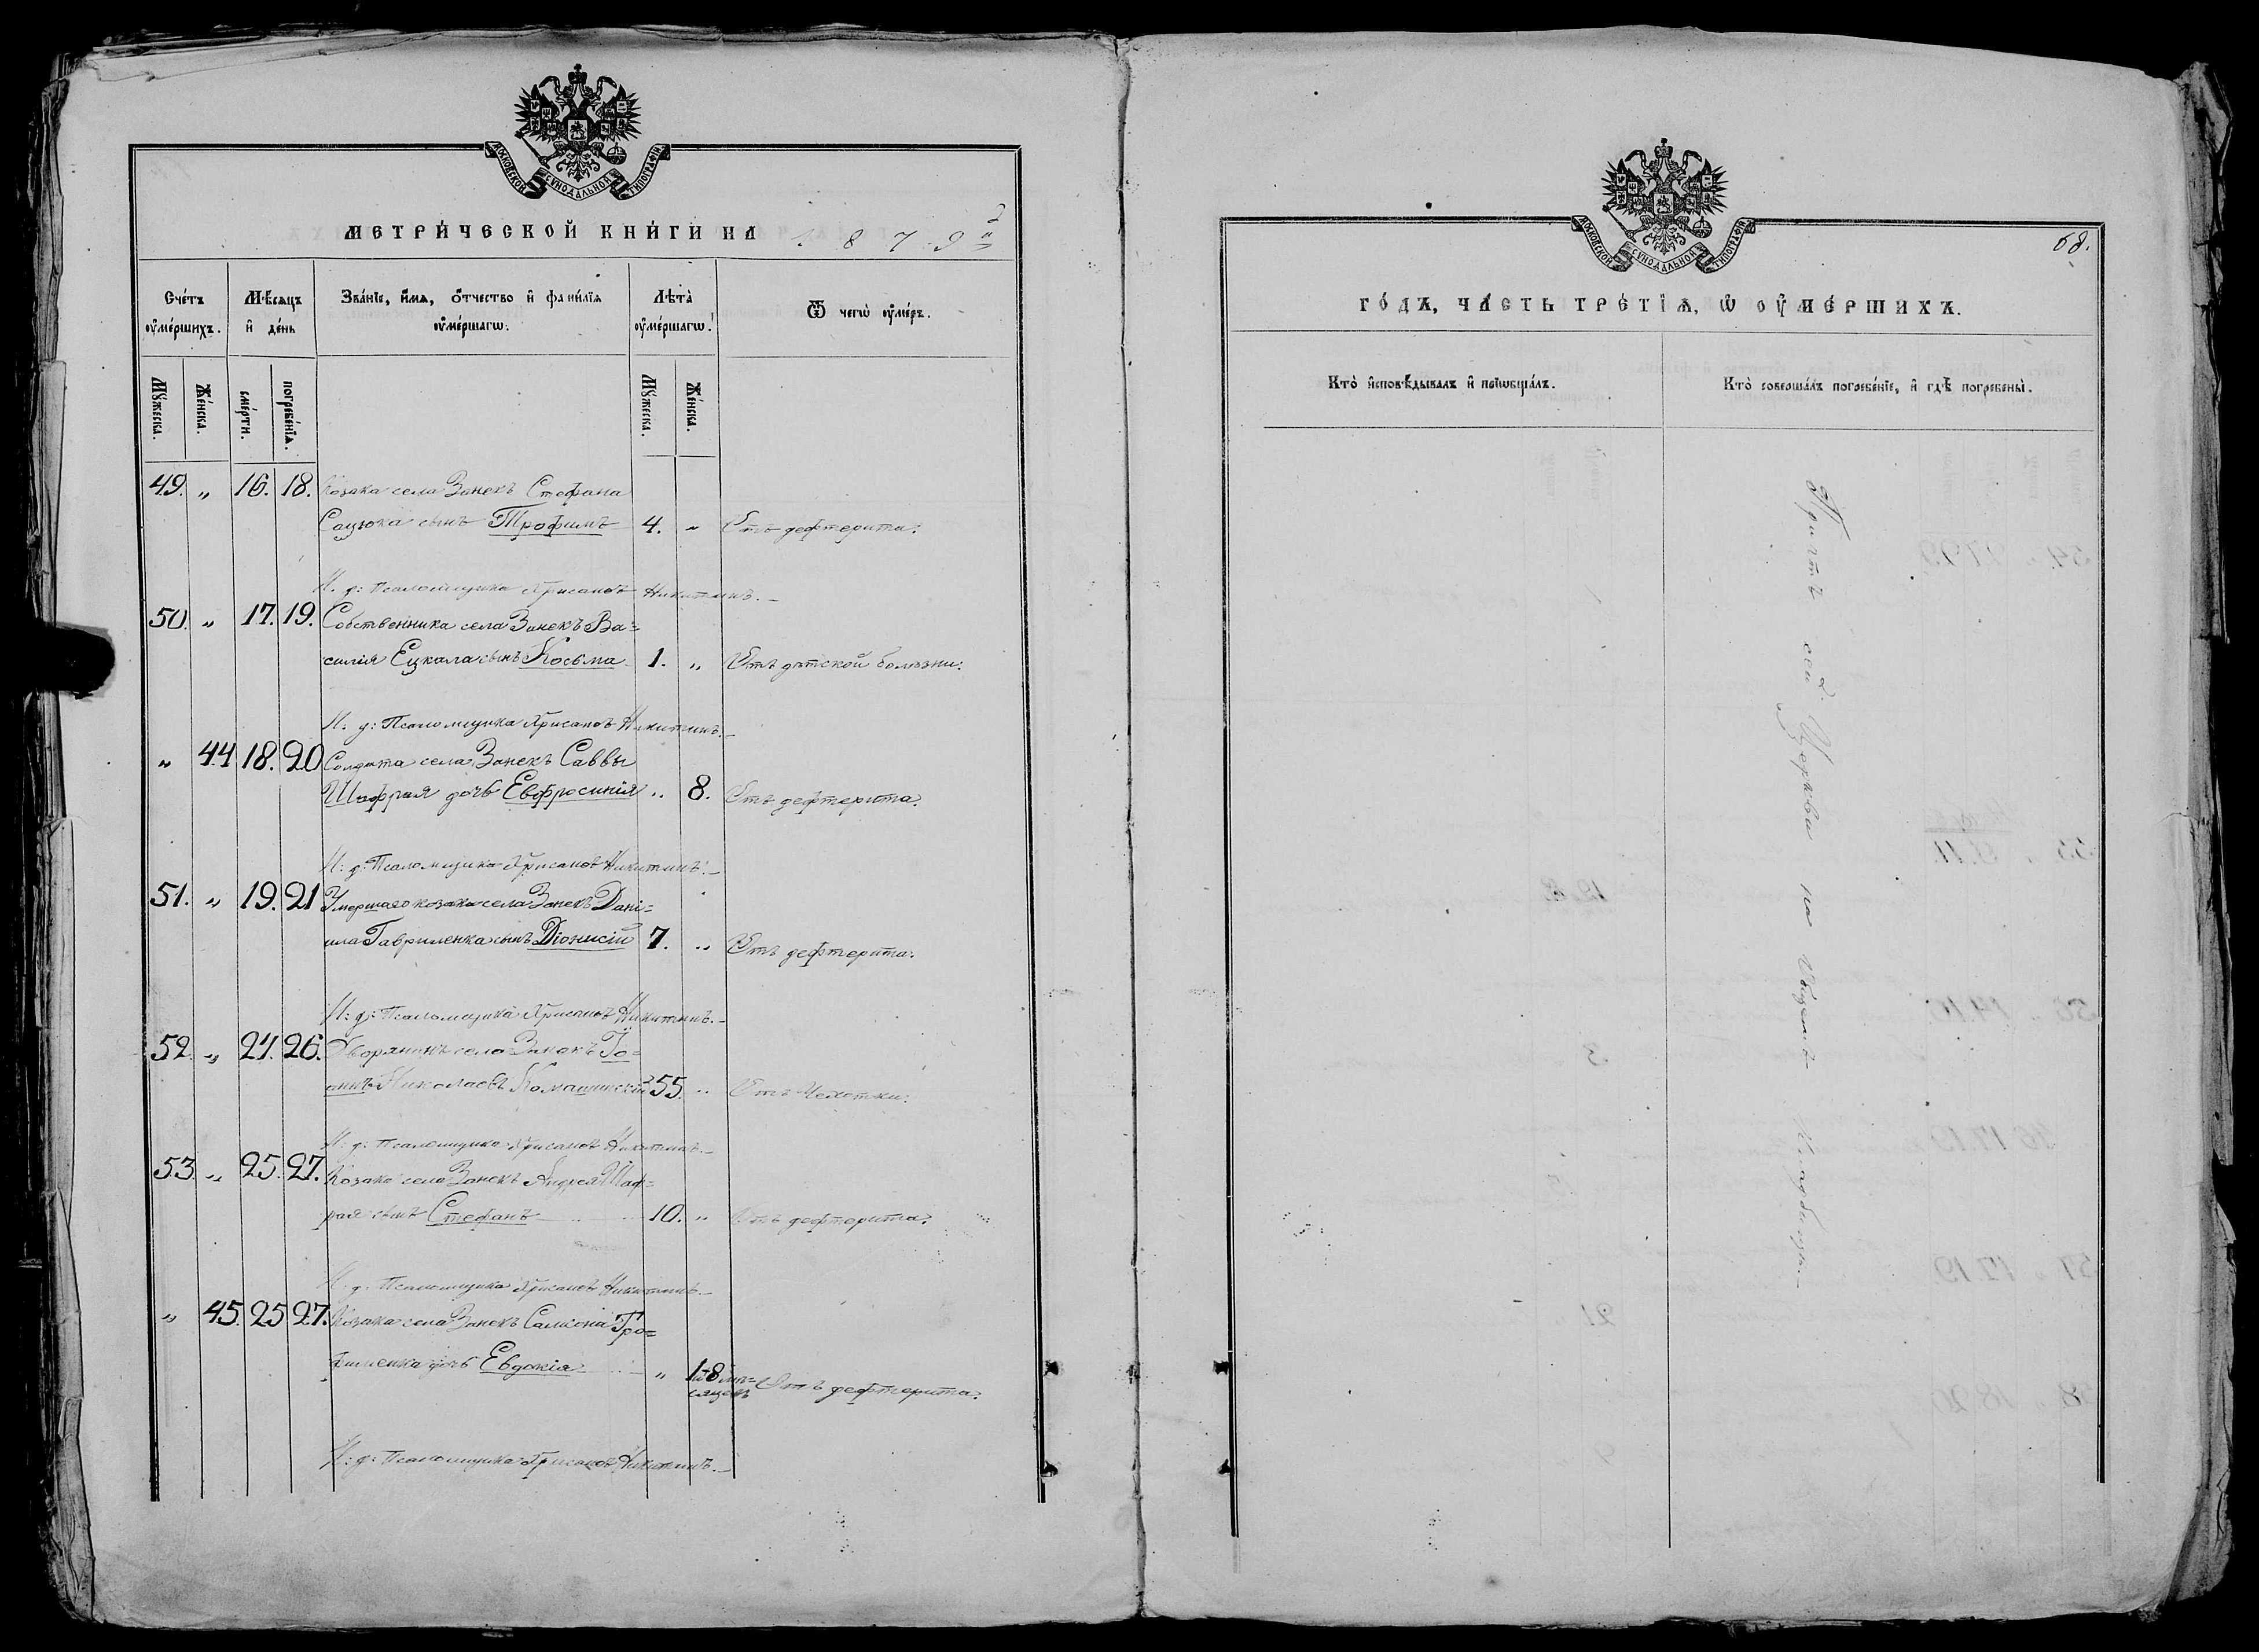 МОСКОВСКОЙ СѴНОДАЛЬНОЙ ТИПОГРАФІИ
МЕТРИ́ЧЕСКОЙ КНИ́ГИ НА 1879й
Сче́тъ оу҆ме́ршихъ.
Мꙋ́жеска.
Же́нска.
Мѣ́сяцъ и҆ де́нь
сме́рти.
погребе́нїѧ.
Зва́нїе, и҆́мѧ, ѻ҆́тчество и҆ фами́лїѧ оу҆ме́ршагѡ.
Лѣ́та оу҆ме́ршагѡ.
Мꙋ́жеска.
Же́нска.
Ѿ чегѡ̀ оу҆́меръ.
49. „ 16. 18. Козака села Занекъ Стефана
Сацюка сынъ Трофимъ 4. „ Отъ дефтерита.
И. д: Псаломщика Хрисанѳъ Никитинъ.
50. „ 17. 19. Собственника села Занекъ Ва=
силія Ецкала сынъ Косьма 1. „ Отъ дѣтской болѣзни.
И. д: Псаломщика Хрисанѳъ Никитинъ.
„ 44 18. 20 Солдата села Занекъ Саввы
Шафрая дочь Евфросинія „ 8. Отъ дефтерита.
И: д: Псаломщика Хрисанѳъ Никитинъ.
51. „ 19. 21 Умершаго козака села Занекъ Дані=
ила Гавриленка сынъ Діонисій 7. „ Отъ дефтерита.
И: д: Псаломщика Хрисанѳъ Никитинъ.
52. „ 24. 26. Дворянинъ села Занекъ Іо=
аннъ Николаевъ 55. „ Отъ Чахотки.
И: д: Псаломщика Хрисанѳъ Никитинъ.
53. „ 25. 27. Козака села Занекъ Андрея Шаф=
рая сынъ Стефанъ 10. „ Отъ дефтерита.
И. д: Псаломщика Хрисанѳъ Никитинъ.
„ 45. 25 27. Козака села Занекъ Самсона Тро=
хименка дочь Евдокія „ 1 и 8 мѣ=
сяцевъ Отъ дефтерита.
И: д: Псаломщика Хрисанѳъ Никитинъ.
МОСКОВСКОЙ СѴНОДАЛЬНОЙ ТИПОГРАФІИ
68.
ГО́ДА, ЧА́СТЬ ТРЕ́ТЇѦ, Ѡ҆ ОУ҆МЕ́РШИХЪ.
Кто̀ и҆сповѣ́дывалъ и҆ прїѡбща́лъ.
Кто̀ соверша́лъ погребе́нїе, и҆ гдѣ̀ погребены̀.
Причтъ сей Церкви на Общемъ Кладбищѣ.